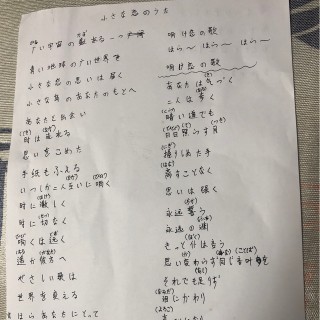 小さな恋のうた
広い宇宙の数ある一つ
青い地球の広い世界で
小さな恋の思いは届く
小さな島のあなたのもとへ
あなたと出会い
時は流れる
思いをこめた
手紙もふえる
いつしか二人互いに响く
時に激しく
時に切なく
响くは遠く
遥か彼方へ
やさしい歌は
世界を変える
ほらあなたにとって
响け恋の歌
ほら〜 ほら〜 ほら〜
响け恋の歌
あなたは気づく
二人は歩く
暗い道でも
日日照らす月
握りしめた手
離すことなく
思いは強く
永遠誓う
永遠の淵
きっと僕は言う
思い変わらず同じ言葉を
それでも足りず
涙にかわり